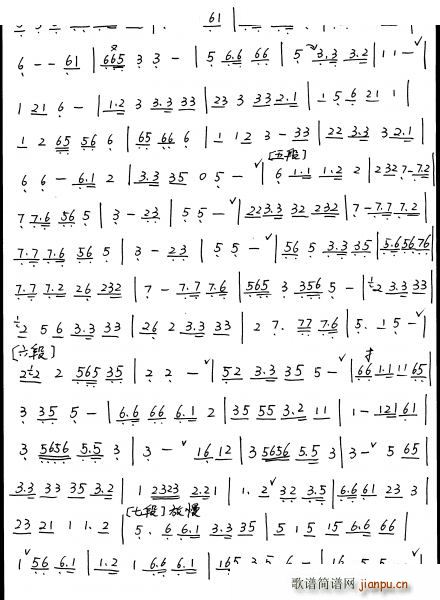 61
6 - - 61 | 665 3 3 - | 5 6.6 66 | 5 3.3 3.2 | 1 1 - ∨ |
1 21 6 - | 1.2 3 3.3 33 | 23 3 33 2.1 | 1 5 6 21 1 |
1 2 65 56 6 | 65 66 6 | 1 12 3 - 33 | 22 3.3 3 2.1 |
[五段]
6 6 - 6.1 2 | 3.3 35 0 5 - ∨ | 6 1.1 1.2 2 | 2 32 7 - 7.2
7 7.6 56 5 | 3 - 23 | 5 5 - ∨ | 22 3.3 32 232 | 7 - 7.7 7.2 |
7.7 7.6 56 5 | 3 - 23 | 5 5 - ∨ | 56 5 3.3 35 | 5.6 56 76
7.7 7.2 26 232 | 7 - 7.7 7.6 | 565 3 356 5 - | 2 3.3 33 |
2 5 6 3.3 33 | 26 2 3.3 33 | 2 7. 77 7.6 | 5. 1 5 - ∨ |
[六段]
2 2 2 565 35 | 2 2 - ∨ | 52 3.3 35 5 - ∨ | 66 1.1 11 65 |
3 35 5 - | 6.6 66 6.1 2 | 35 55 3.2 11 | 1 - 121 61 |
3 5656 5.5 3 | 3 - ∨ 16 12 | 3 5656 5.5 3 | 3 - ∨ 5 65 |
3.3 33 35 3.2 | 1 2323 2.21 | 1. 2 ∨ 32 3.5 | 6.6 61 23 3 |
[七段] 放慢
23 21 1 1.2 | 5. 6 6.1 3.3 35 | 5 1 5 15 6.6 66 |
1 ∨ 56 6.1 | 1.2 1 6.6 6.1 |
歌谱简谱网
jianpu.cn